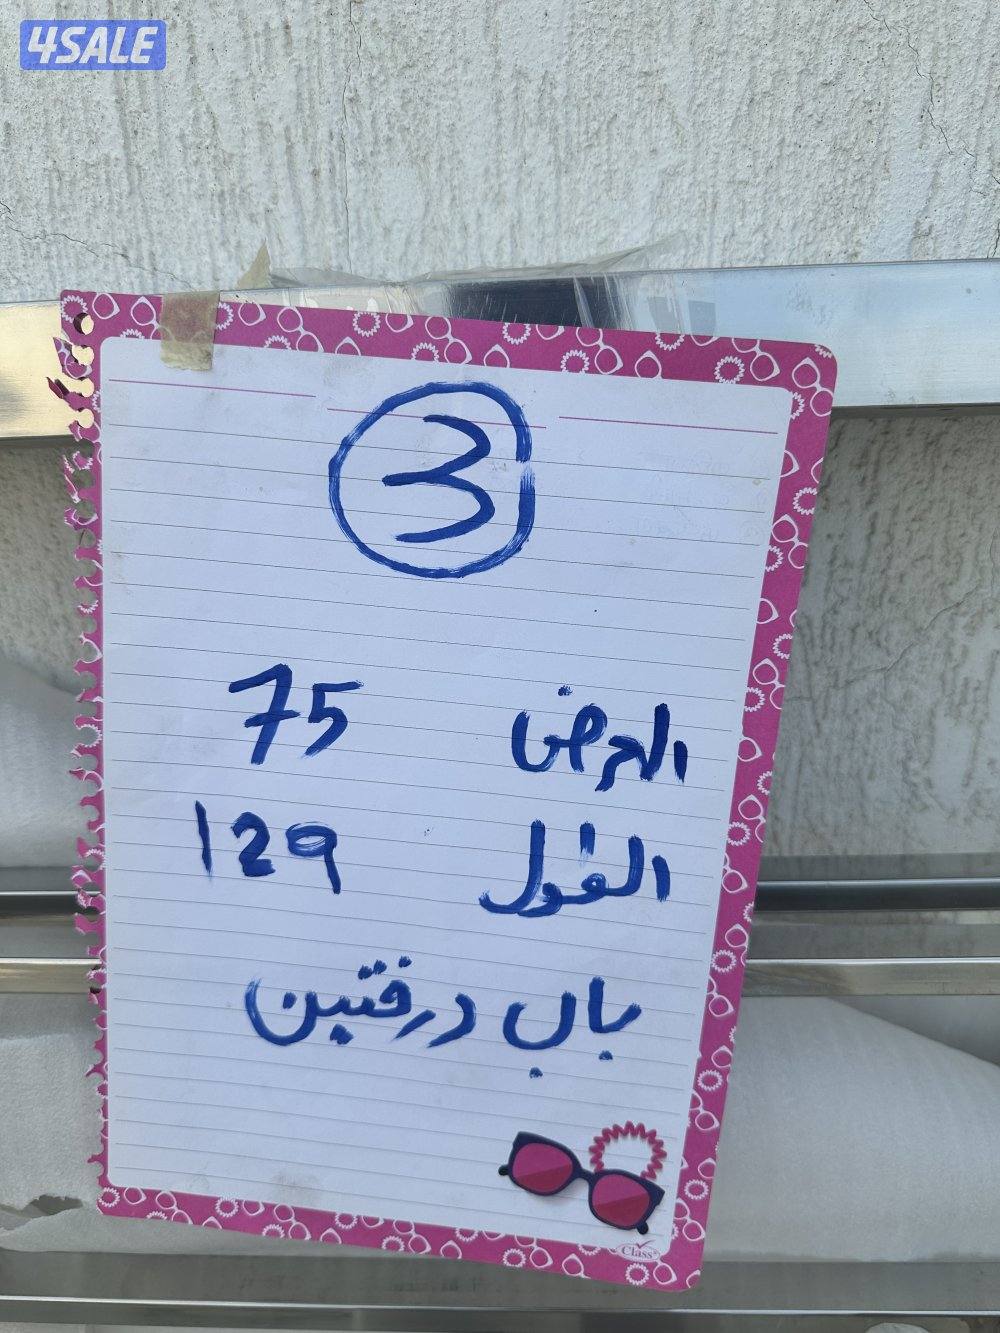 4SALE
3
العرض 75
الطول 129
باب درفتين
Class